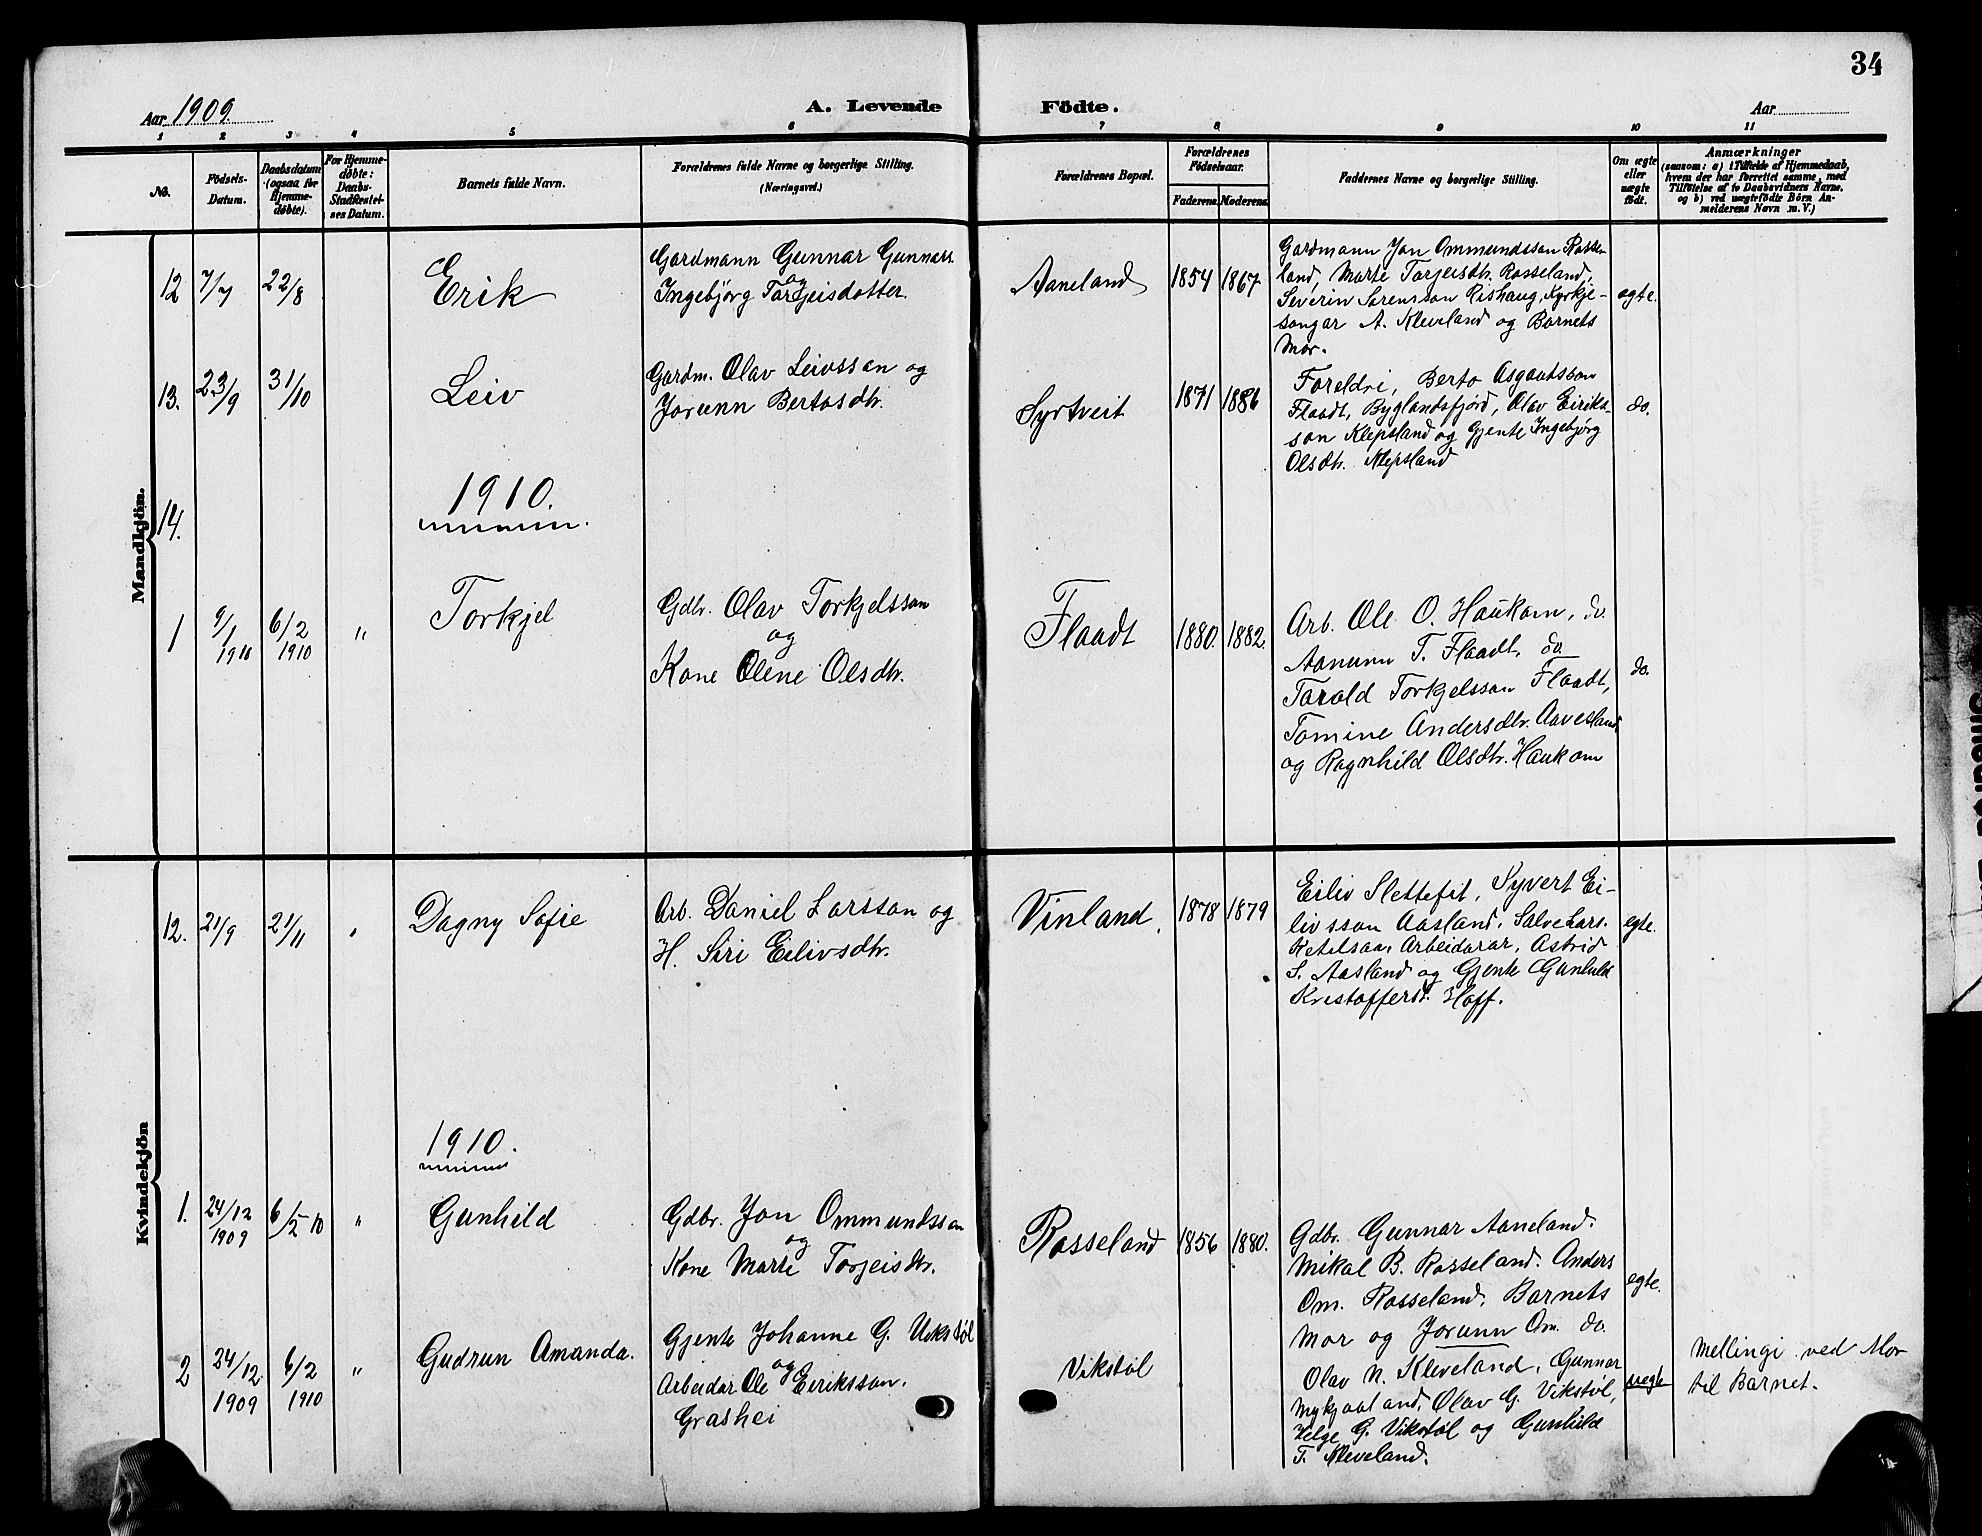 34
Aar 1909.
A. Levende
Födte.
Aar
1 2 3 4 5 6 7 8 9 10 11
No.
Födsels-
Datum.
Daabsdatum
(ogsaa for
Hjemme-
døbte).
For Hjemme-
døbte:
Daabs-
Stadfæstel-
ses Datum.
Barnets fulde Navn.
Forældrenes fulde Navne og borgerlige Stilling.
(Næringsvei.)
Forældrenes Bopæl.
Forældrenes
Födselsaar.
Faderens. Moderens.
Faddernes Navne og borgerlige Stilling.
Om ægte
eller
uægte
født.
Anmærkninger
(saasom: a) i Tilfælde af Hjemmedaab,
hvem der har forrettet samme, med
Tilføielse af to Daabsvidners Navne,
og b) ved uægtefødte Börn An-
melderens Navn m. V.)
Mandkjön.
12 7/7 22/8
Erik
Gardmann Gunnar Gunnars.
og
Ingebjörg Torgeisdotter.
Aaneland
1854 1867
Gardmann Jon Ommundsson Rosse-
land, Marte Torjeisdtr. Rosseland,
Severin Sørensson Rishaug, Kyrkje-
songar A. Kleveland og Barnets
Mor.
egte.
13. 23/9 31/10
Leiv
Gardm. Olav Leivsson og
Jorunn Bertosdtr.
Syrtveit
1871 1886
Foreldri, Berto Asgautsson
Flaadt, Byglandsfjörd, Olav Eiriks-
son Klepsland og Gjente Ingebjørg
Olsdtr. Klepsland
do.
14.
1910.
1 9/1 1910 6/2 1910 "
Torkjel
Gdbr. Olav Torkjelsson
og
Kone Olene Olsdtr.
Flaadt
1880. 1882.
Arb. Ole O. Haukom, do.
Aanunn T. Flaadt, do
Torold Torkjelsson Flaadt,
Tomine Andersdtr. Aavesland
og Ragnhild Olsdtr. Haukom
do.
Kvindekjön
12. 21/9 21/11 "
Dagny Sofie
Arb. Daniel Larsson og
H. Siri Eilivsdtr.
Vinland.
1878 1879
Eiliv Slettefit, Syvert Ei-
livsson Aasland, Salve Lars.
Ketilsaa, Arbeidarar, Astrid
S. Aasland og Gjente Gunhild
Kristoffersd. Hoff.
egte.
1910.
1. 24/12 1909 6/2 10 "
Gunhild
Gdbr. Jon Ommundsson
og
Kone Marte Torjeisdtr.
Rosseland
1856 1880.
Gdbr. Gunnar Aaneland.
Mikal B. Rosseland. Anders
Om. Rosseland, Barnets
Mor og Jorunn Om. do.
egte.
2 24/12 1909 6/2 1910 "
Gudrun Amanda.
Gjente Johanne G. Vikstøl
og
Arbeidar Ole Eeriksson.
Grashei
Vikstøl
Olav N. Kleveland, Gunnar
Mykjaaland, Olav G. Vikstøl,
Helge G. Vikstøl og Gunhild
T. Kleveland.
uegte
Mellingi ved Mor
til Barnet.